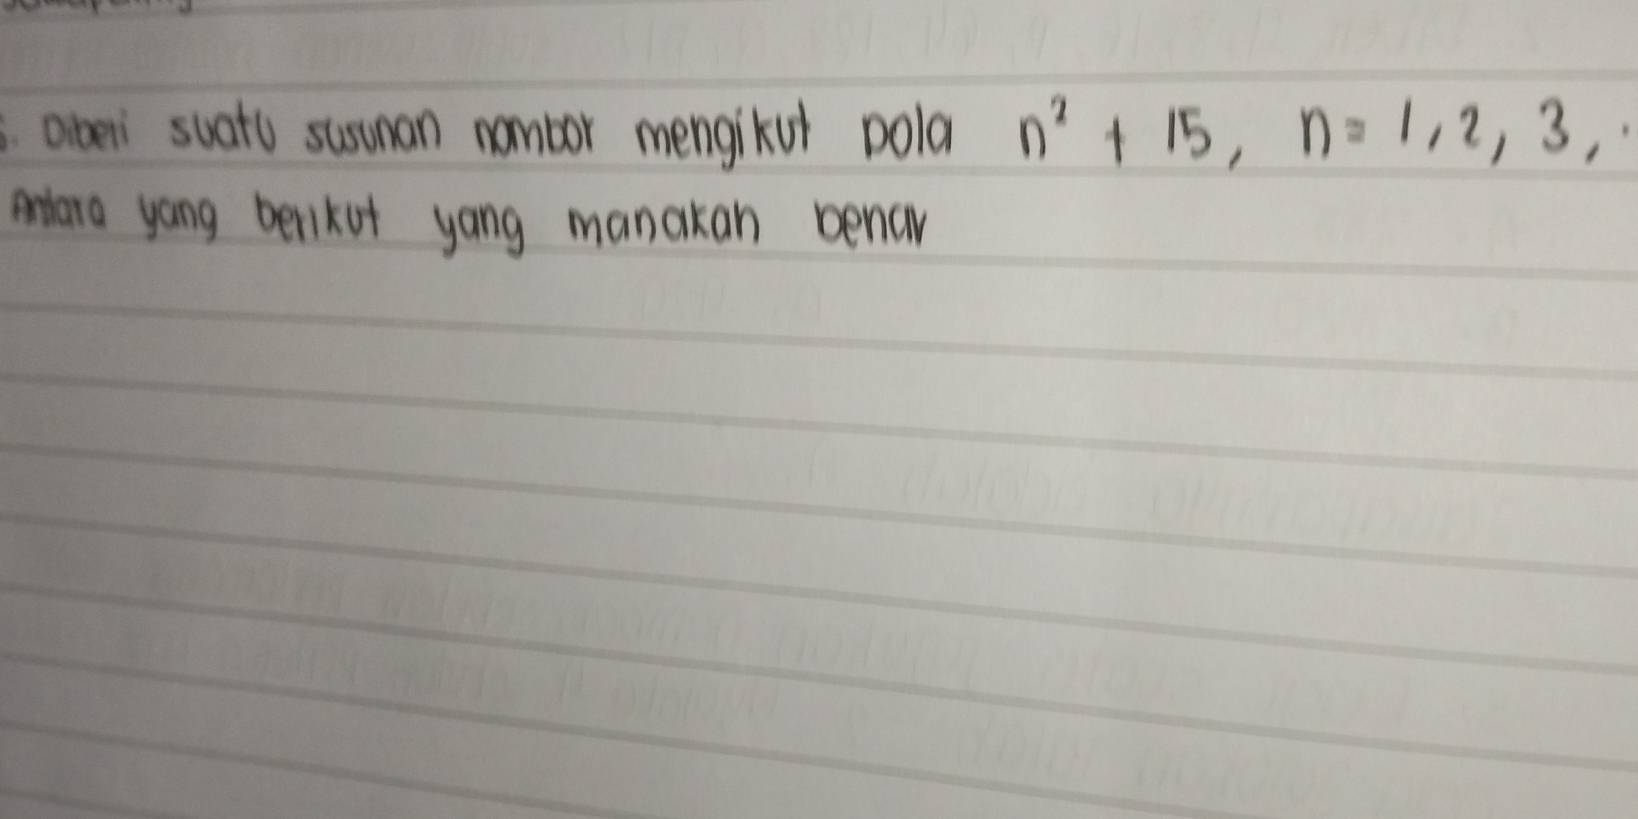 Diberi suatu susunan nombor mengikut pola n² + 15, n = 1, 2, 3, .
Antara yang berikut yang manakah benar